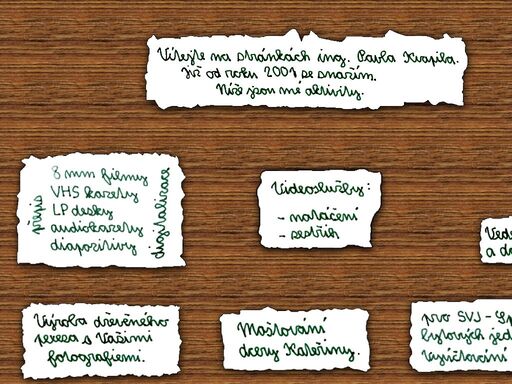 Vítejte na stránkách ing. Pavla Kvapila.
Již od roku 2001 se snažím.
Níže jsou mé aktivity.
přepis
8 mm filmy
VHS kazety
LP desky
audiokazety
diapozitivy
digitalizace
Videoslužby:
- natáčení
- sestřih
Vede
a da
Výroba dřevěného
pexesa s Vašimi
fotografiemi.
Maštování
dcery Kateřiny.
pro SVJ - Sp
bytových jed
Vyúčtování